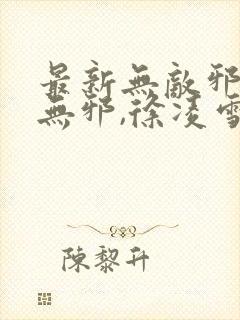 最新無敵邪
無邪,徐凌雪
陳黎升